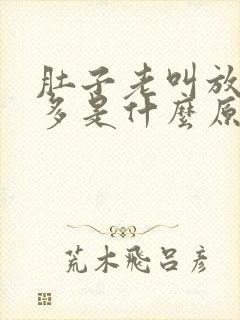 肚子老叫放
多是什麼原
荒木飛呂彥